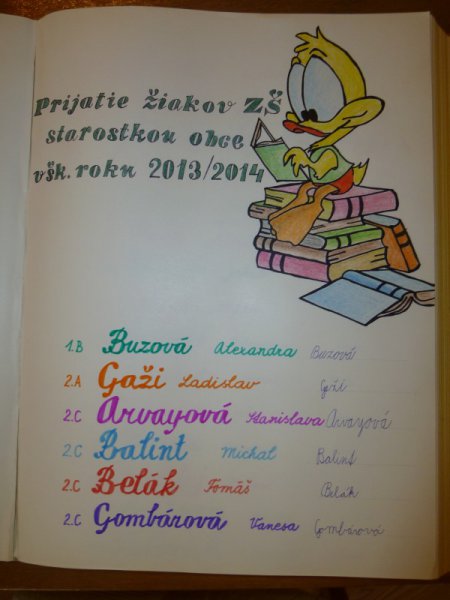 Prijatie žiakov ZŠ
starostkou obce
v šk. roku 2013/2014
1.B Buzová Alexandra Buzová
2.A Gaži Ladislav Gaži
2.C Arvayová Stanislava Arvayová
2.C Balint Michal Balint
2.C Belák Tomáš Belák
2.C Gombárová Vanesa Gombárová